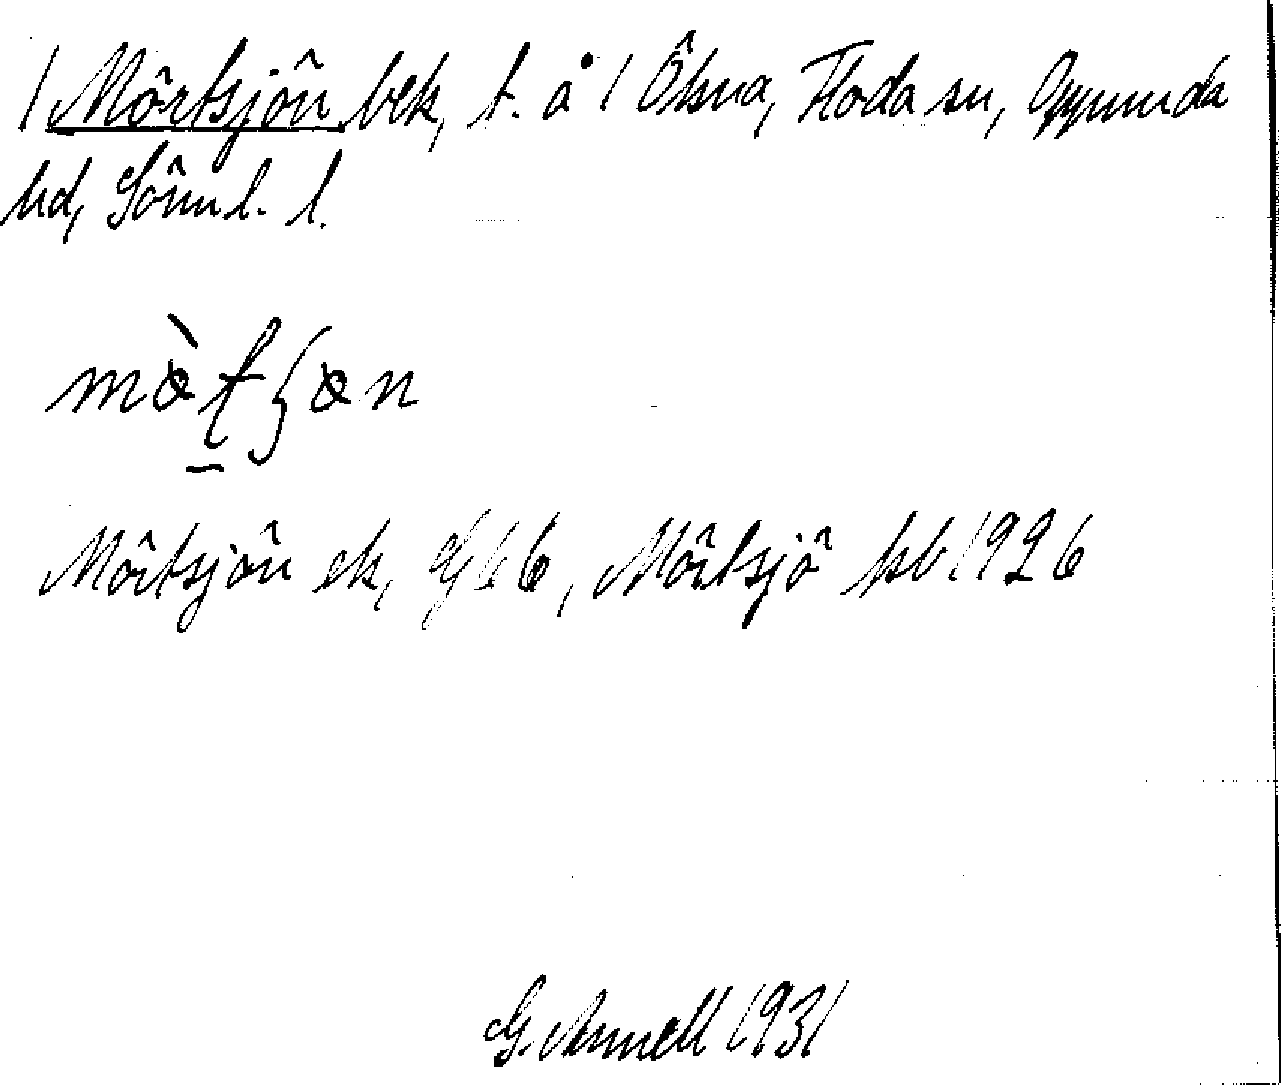 1 Mörtsjön bek, t. å 1 Öksna, Floda sn, Oppunda
hd, Sörml. l.
mö̀tʃön
Mörtsjön ek, G 66, Mörtsjö kb 1926
G. Annell 1931